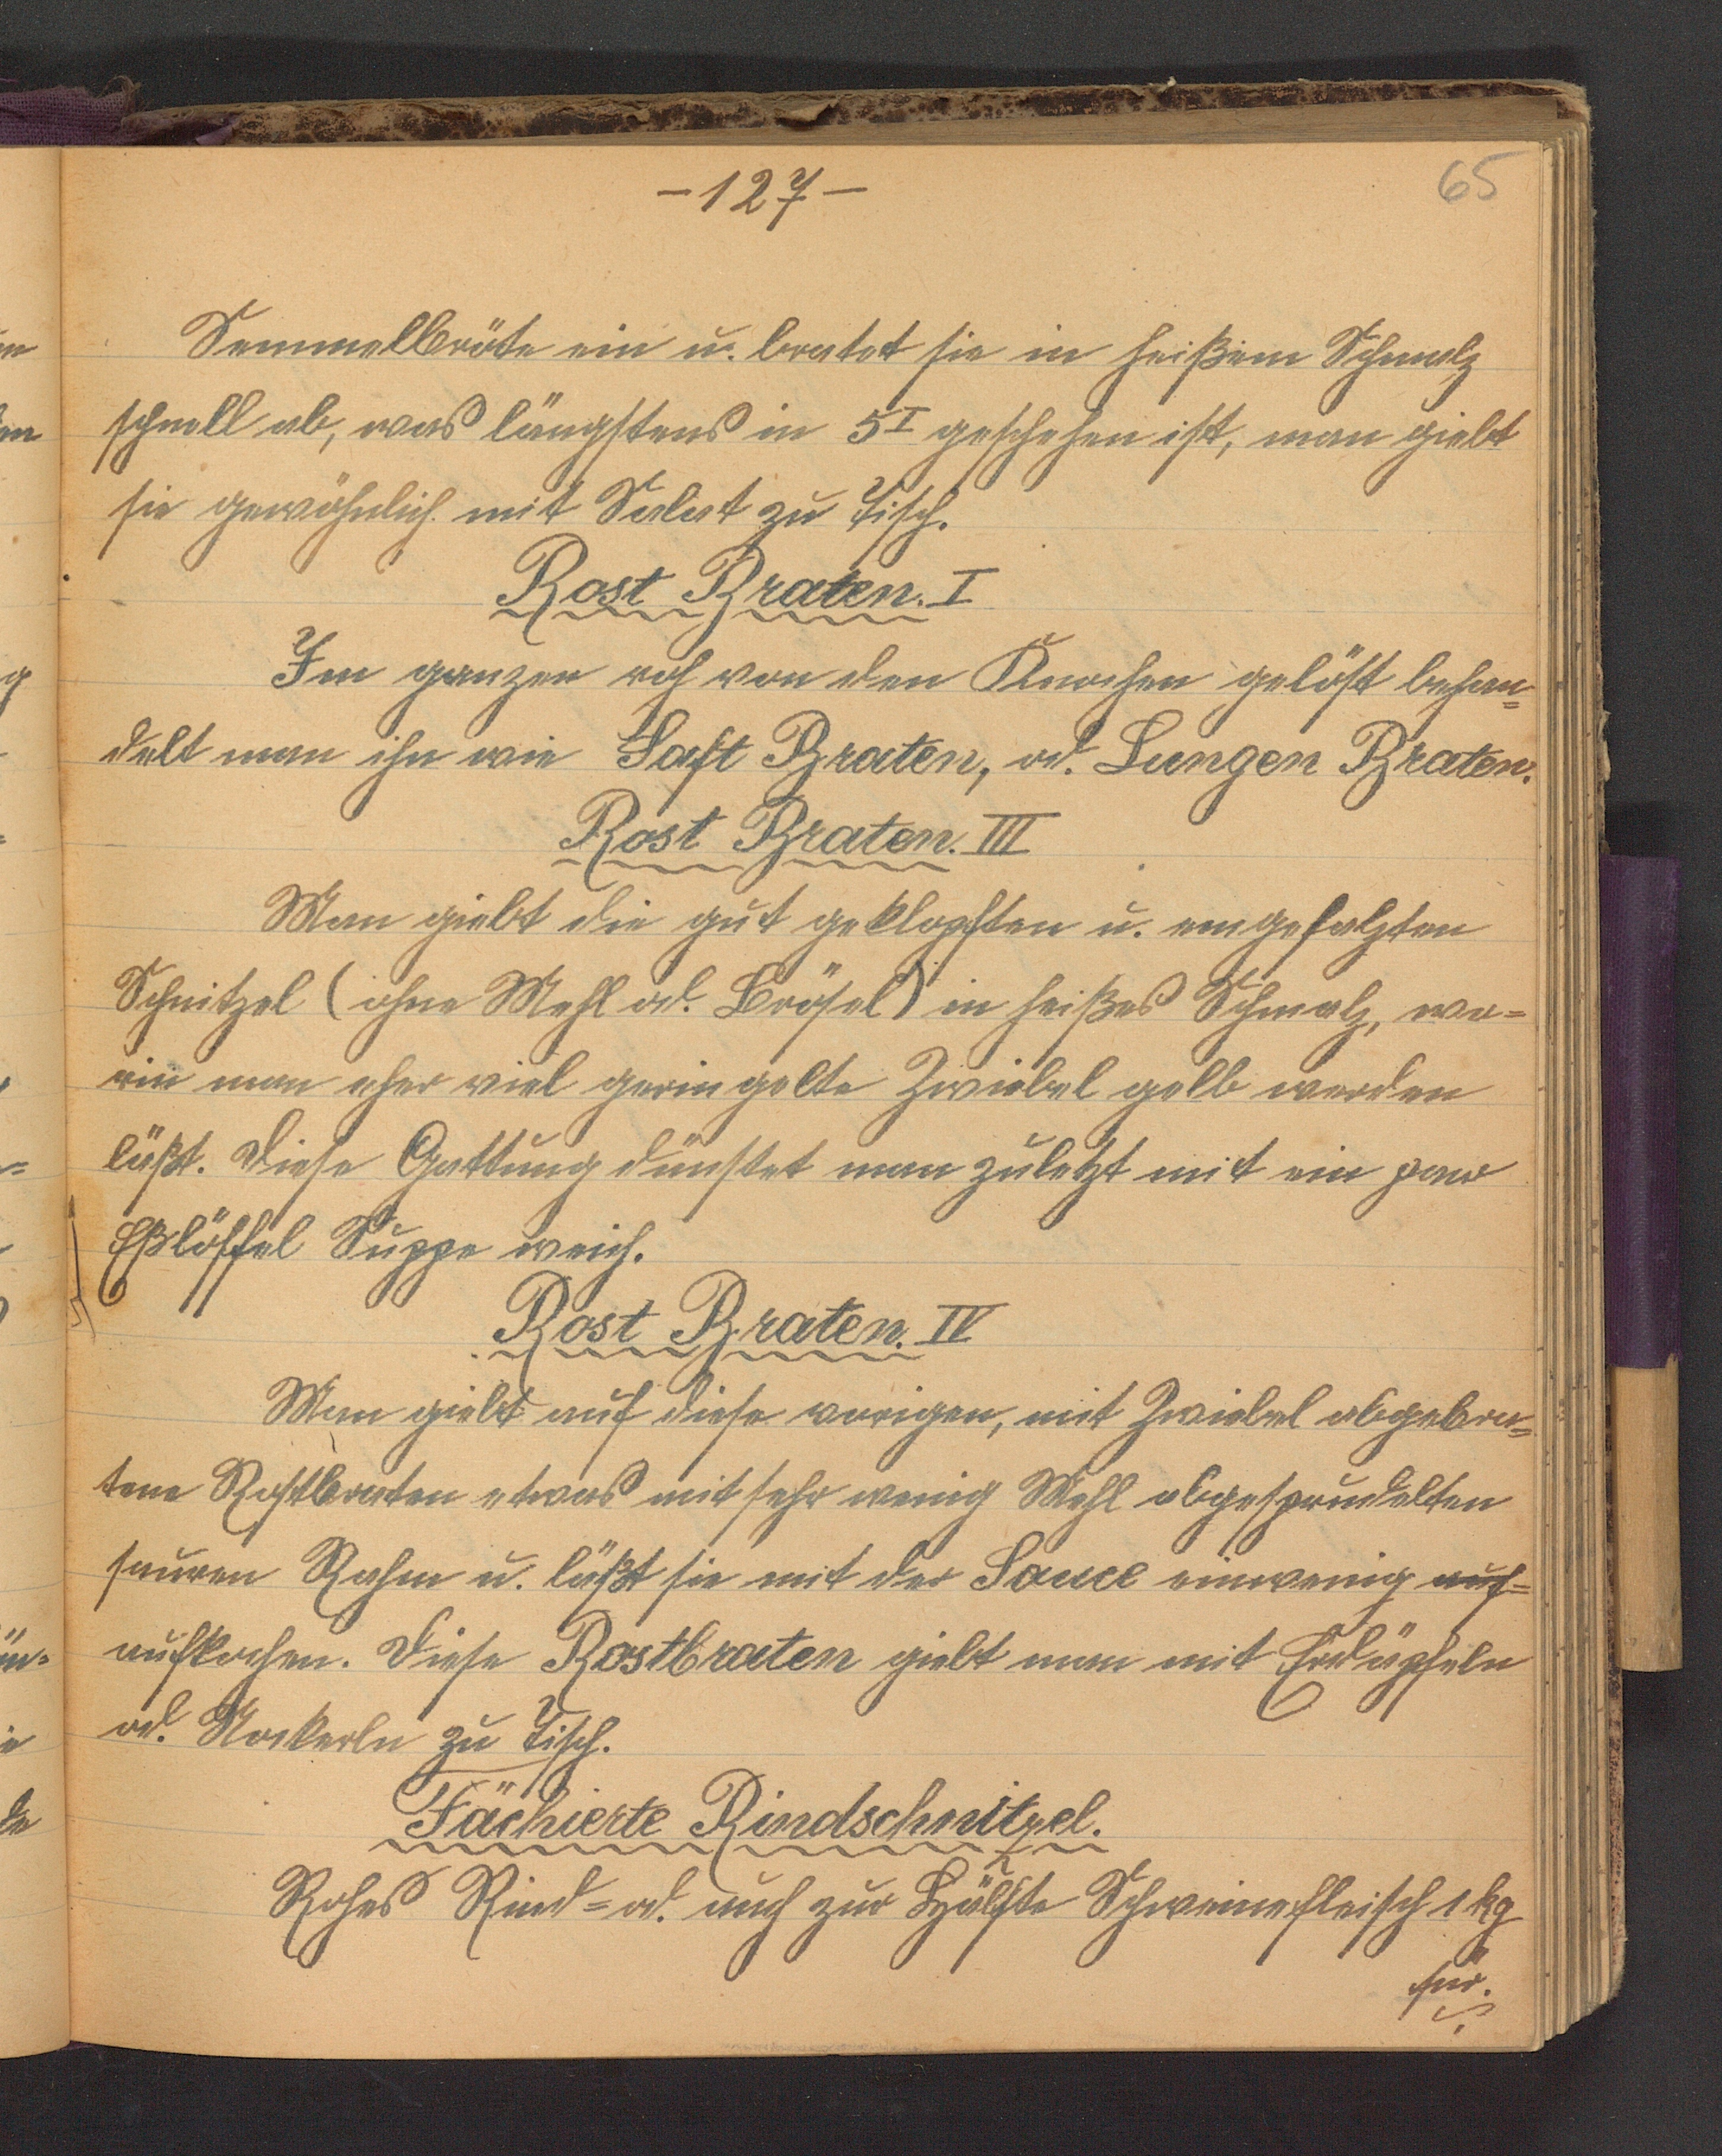 - 127 -
65
Semmelbröte ein u. bratet sie in heißem Schmalz
schnell ab, was längstens in 5I geschehen ist, man giebt
sie gewöhnlich mit Salat zu Tisch.
Rost Braten. I
Im ganzen roh von den Knochen gelöst behan=
delt man ihn wie Saft Braten, od. Lungen Braten.
Rost Braten. III
Man giebt die gut geklopften u. eingesalzten
Schnitzel (ohne Mehl od. Brösel) in heißes Schmalz, wo=
rin man eher viel geringelte Zwiebel gelb werden
läßt. Diese Gattung dünstet man zuletzt mit ein paar
Eßlöffel Suppe weich.
Rost Braten. IV
Man giebt auf diese vorigen, mit Zwiebel abgebra=
tene Rostbraten etwas mit sehr wenig Mehl abgesprudelten
sauren Rahm u. läßt sie mit der Sauce einwenig auf=
aufkochen. Diese Rostbraten giebt man mit Erdäpfeln
od. Nockerln zu Tisch.
Fächierte Rindschnitzel.
Rohes Rind= od. auch zur Hälfte Schweinefleisch 1 kg
für.